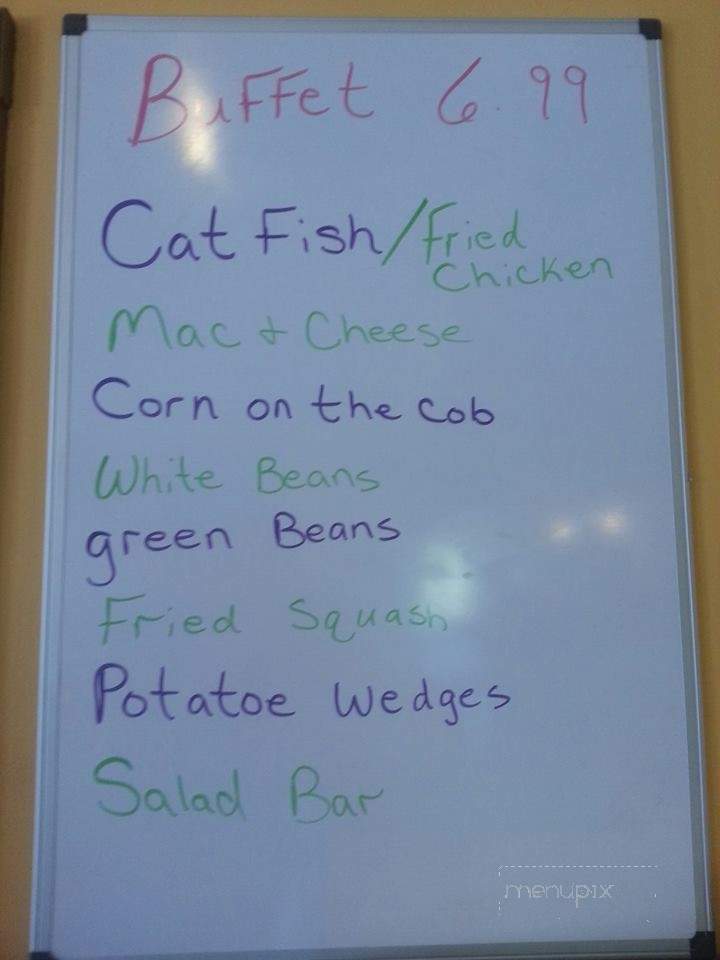 Buffet 6.99
Cat Fish/Fried
Chicken
Mac + Cheese
Corn on the cob
White Beans
green Beans
Fried Squash
Potatoe wedges
Salad Bar
menupix